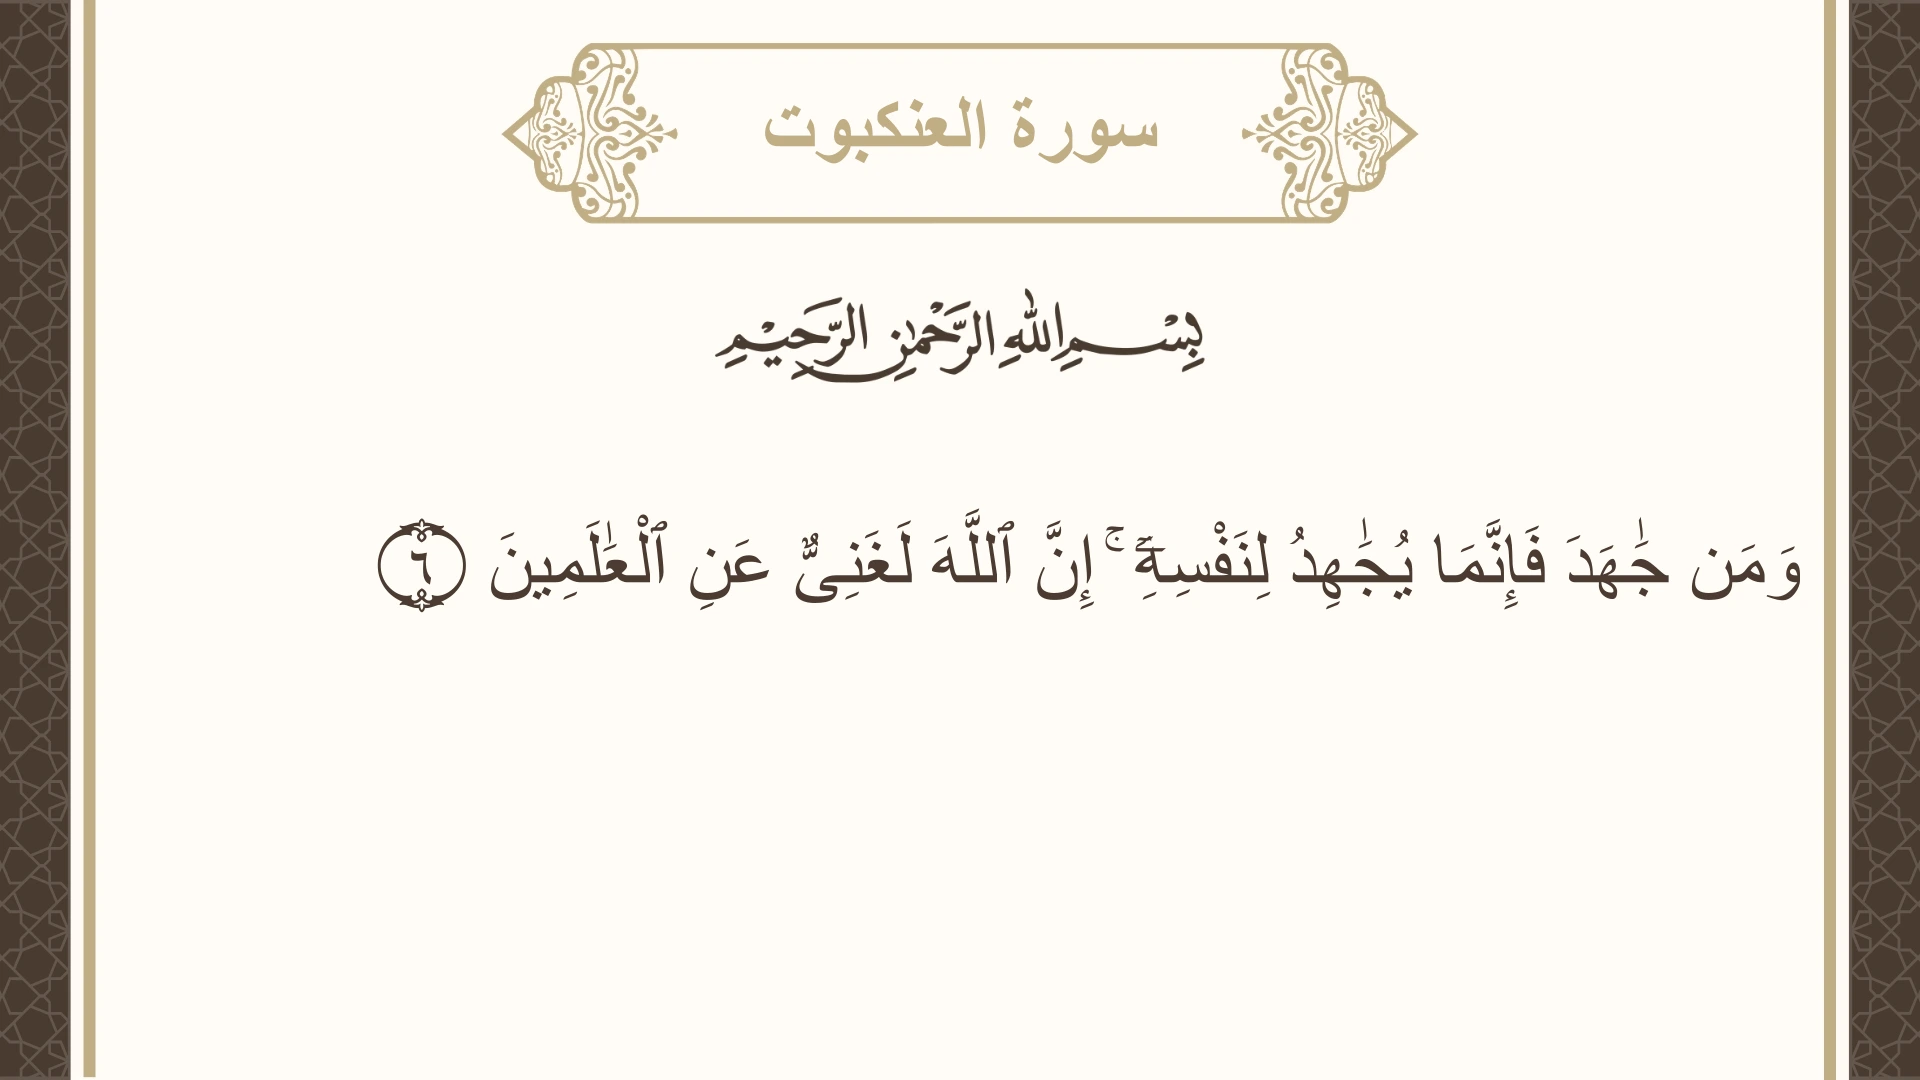 سورة العنكبوت
بِسْمِ اللهِ الرَّحْمٰنِ الرَّحِيْمِ
وَمَن جَٰهَدَ فَإِنَّمَا يُجَٰهِدُ لِنَفْسِهِۦٓ ۚ إِنَّ ٱللَّهَ لَغَنِىٌّ عَنِ ٱلْعَٰلَمِينَ ٦